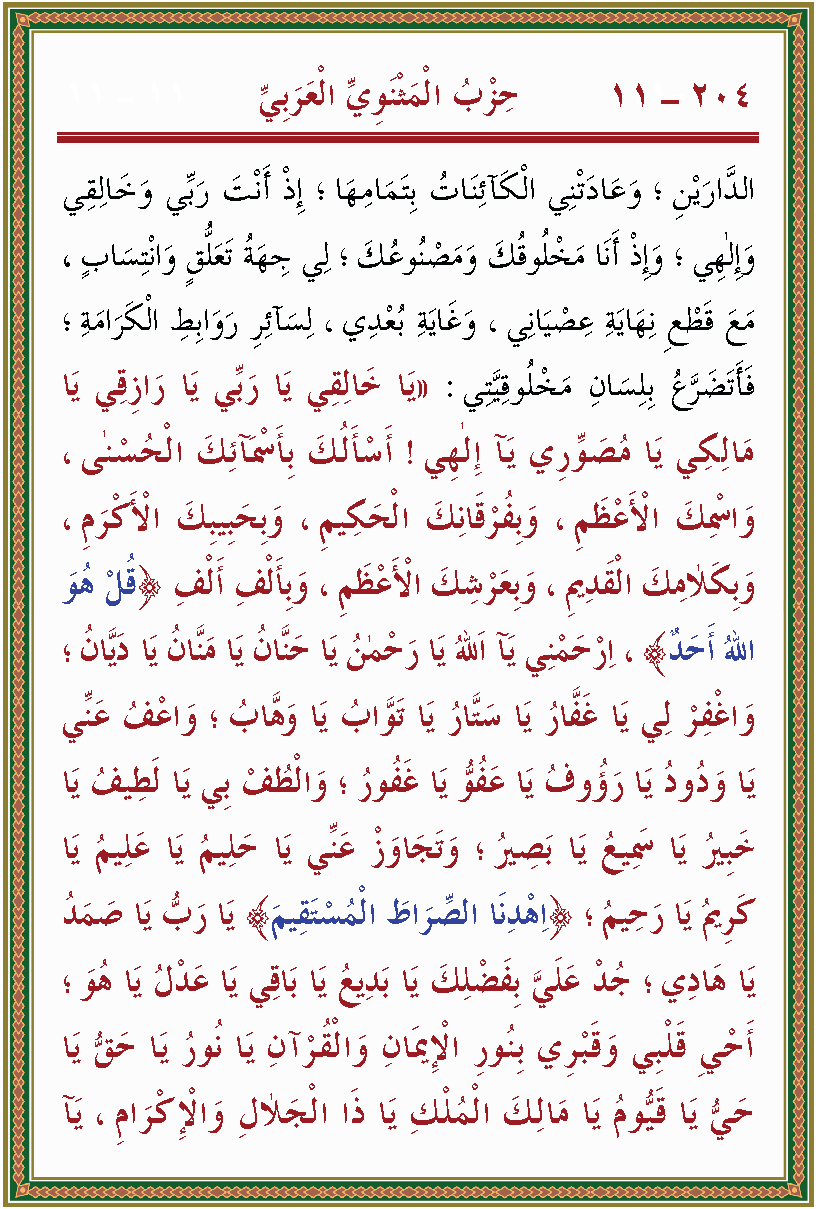 ٢٠٤ – ١١ حِزْبُ الْمَثْنَوِيِّ الْعَرَبِيِّ
الدَّارَيْنِ ؛ وَعَادَتْنِي الْكَآئِنَاتُ بِتَمَامِهَا ؛ إِذْ أَنْتَ رَبِّي وَخَالِقِي
وَإِلٰهِي ؛ وَإِذْ أَنَا مَخْلُوقُكَ وَمَصْنُوعُكَ ؛ لِي جِهَةُ تَعَلُّقٍ وَانْتِسَابٍ ،
مَعَ قَطْعِ نِهَايَةِ عِصْيَانِي ، وَغَايَةِ بُعْدِي ، لِسَآئِرِ رَوَابِطِ الْكَرَامَةِ ؛
فَأَتَضَرَّعُ بِلِسَانِ مَخْلُوقِيَّتِي : «يَا خَالِقِي يَا رَبِّي يَا رَازِقِي يَا
مَالِكِي يَا مُصَوِّرِي يَآ إِلٰهِي ! أَسْأَلُكَ بِأَسْمَآئِكَ الْحُسْنٰى ،
وَاسْمِكَ الْأَعْظَمِ ، وَبِفُرْقَانِكَ الْحَكِيمِ ، وَبِحَبِيبِكَ الْأَكْرَمِ ،
وَبِكَلَامِكَ الْقَدِيمِ ، وَبِعَرْشِكَ الْأَعْظَمِ ، وَبِأَلْفِ أَلْفِ ﴿قُلْ هُوَ
اللهُ أَحَدٌ﴾ ، اِرْحَمْنِي يَآ اَللهُ يَا رَحْمٰنُ يَا حَنَّانُ يَا مَنَّانُ يَا دَيَّانُ ؛
وَاغْفِرْ لِي يَا غَفَّارُ يَا سَتَّارُ يَا تَوَّابُ يَا وَهَّابُ ؛ وَاعْفُ عَنِّي
يَا وَدُودُ يَا رَؤُوفُ يَا عَفُوُّ يَا غَفُورُ ؛ وَالْطُفْ بِي يَا لَطِيفُ يَا
خَبِيرُ يَا سَمِيعُ يَا بَصِيرُ ؛ وَتَجَاوَزْ عَنِّي يَا حَلِيمُ يَا عَلِيمُ يَا
كَرِيمُ يَا رَحِيمُ ؛ ﴿اِهْدِنَا الصِّرَاطَ الْمُسْتَقِيمَ﴾ يَا رَبُّ يَا صَمَدُ
يَا هَادِي ؛ جُدْ عَلَيَّ بِفَضْلِكَ يَا بَدِيعُ يَا بَاقِي يَا عَدْلُ يَا هُوَ ؛
أَحْيِ قَلْبِي وَقَبْرِي بِنُورِ الْإِيمَانِ وَالْقُرْآنِ يَا نُورُ يَا حَقُّ يَا
حَيُّ يَا قَيُّومُ يَا مَالِكَ الْمُلْكِ يَا ذَا الْجَلَالِ وَالْإِكْرَامِ ، يَآ